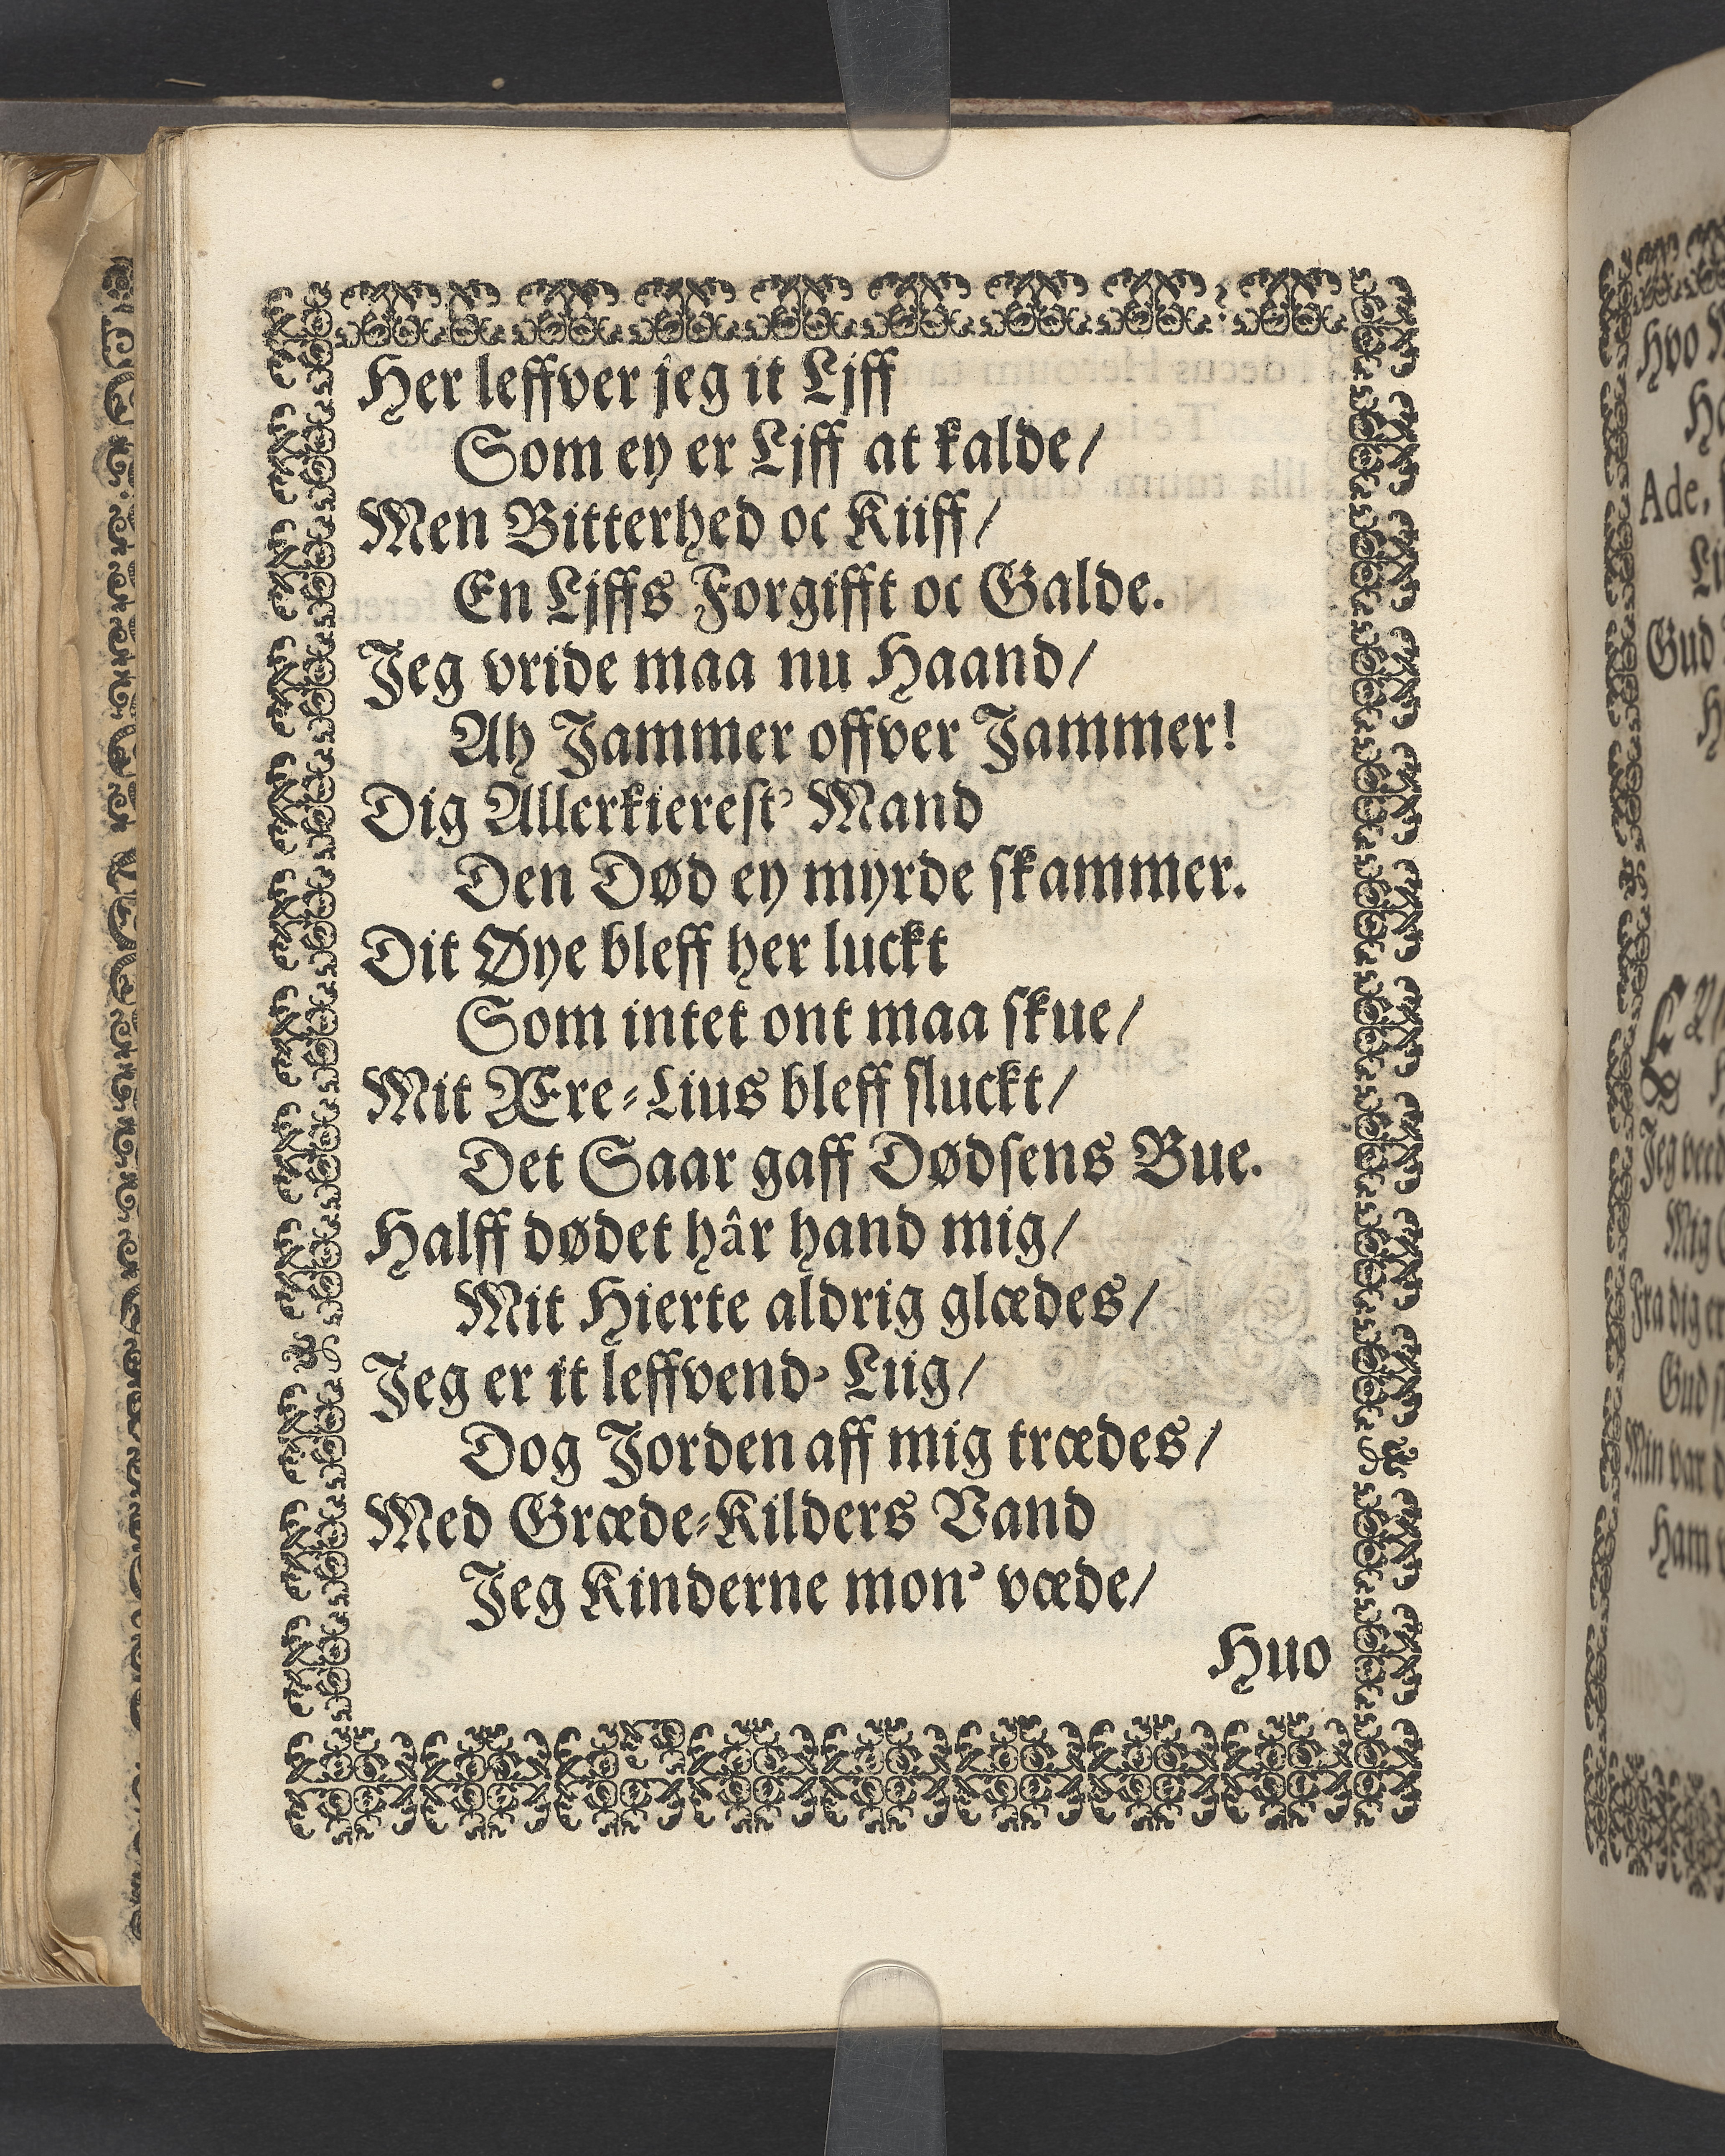 Her leffver jeg it Ljff
Som ey er Ljff at kalde/
Men Bitterhed oc Kiiff/
En Ljffs Forgifft oc Galde.
Jeg vride maa nu Haand/
Ah Jammer offver Jammer!
Dig Allerkierest' Mand
Den Død ey myrde skammer.
Dit Øye bleff her luckt
Som intet ont maa skue/
Mit Ære-Lius bleff sluckt/
Det Saar gaff Dødsens Bue.
Halff dødet hâr hand mig/
Mit Hierte aldrig glædes/
Jeg er it leffvend' Liig/
Dog Jorden aff mig trædes/
Med Græde-Kilders Vand
Jeg Kinderne mon' væde/
Huo
Hvo
Ade,
Gud
Jeg
Mig
Fra dig er
Gud
Min var
Ham